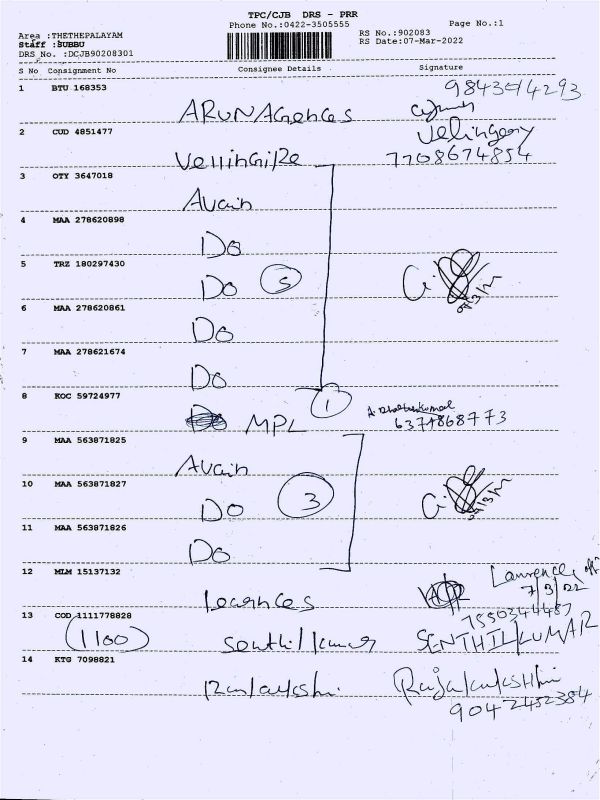 TPC/CJB DRS - PRR
Phone No.:0422-3505555 Page No.:1
Area :THETHEPALAYAM RS No.:902083
Staff :BUBBU RS Date:07-Mar-2022
DRS No. :DCJB90208301
S No Consignment No Consignee Details Signature
1 BTU 168353
ARUN Agences
2 CUD 4851477
Vellingire 7708674854
3 OTY 3647018
Avain
4 MAA 278620898
Do
5 TRZ 180297430
Do 5
6 MAA 278620861
Do
7 MAA 278621674
Do
8 KOC 59724977 1
MPL 6374868773
9 MAA 563871825
Avain
10 MAA 563871827
Do 3
11 MAA 563871826
Do
12 MLM 15137132
Lawrence
7/3/22
7550344487
13 COD 1111778828
1100 Senthil kumar SENTHIL KUMAR
14 KTG 7098821
9042452384